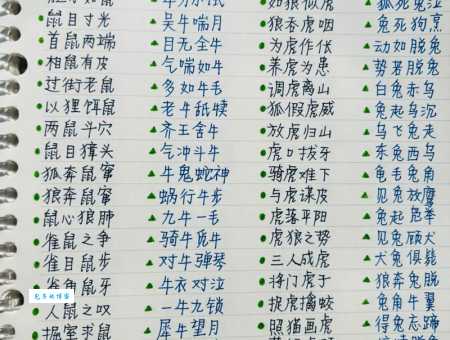 鼠目寸光 吴牛喘月 狼吞虎咽 兔死狗烹
首鼠两端 目无全牛 为虎作伥 动如脱兔
相鼠有皮 气喘如牛 养虎为患 势若脱兔
过街老鼠 多如牛毛 调虎离山 白兔赤乌
以狸饵鼠 老牛舐犊 狐假虎威 兔起乌沉
两鼠斗穴 齐王舍牛 放虎归山 乌飞兔走
鼠目獐头 气冲斗牛 虎口拔牙 东兔西乌
狐奔鼠窜 牛鬼蛇神 骑虎难下 龟毛兔角
狼奔鼠窜 蜗行牛步 与虎谋皮 见兔放鹰
鼠心狼肺 九牛一毛 虎落平阳 兔起凫举
雀鼠之争 骑牛觅牛 虎狼之势 见兔顾犬
雀目鼠步 对牛弹琴 三人成虎 犬兔俱毙
雀角鼠牙 牛衣对泣 将门虎子 狼奔兔脱
人鼠之叹 一牛九锁 捉虎擒蛟 兔角牛翼
掘室求鼠 犀牛望月 照猫画虎 得兔忘蹄